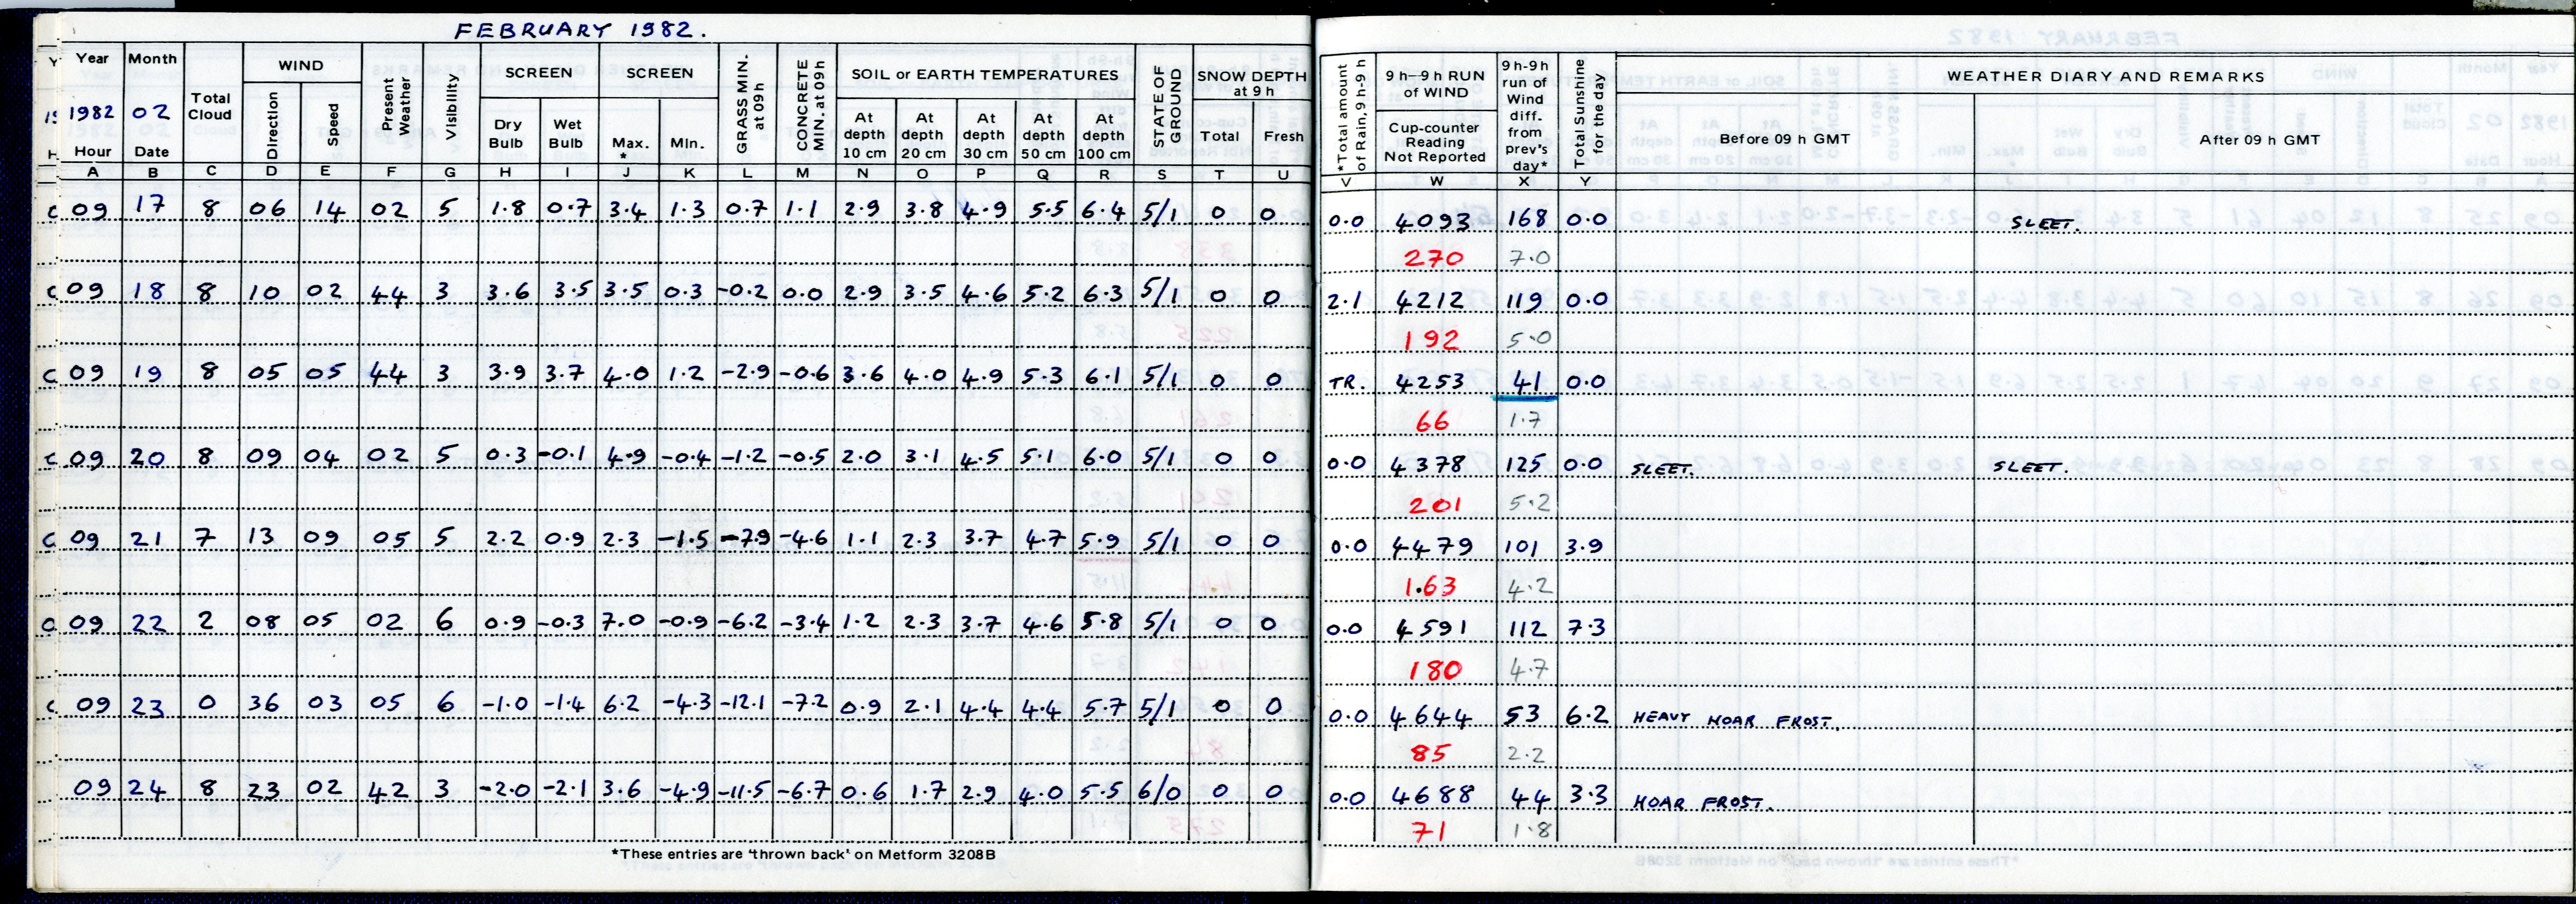 FEBRUARY 1982.
Year Month Total Cloud WIND Present Weather Visibility SCREEN SCREEN GRASS MIN. at 09h CONCRETE MIN. at 09h SOIL or EARTH TEMPERATURES STATE OF GROUND SNOW DEPTH at 9 h *Total amount of Rain, 9h-9 h 9 h—9 h RUN of WIND 9 h-9h run of Wind diff. from prev's day* Total Sunshine for the day WEATHER DIARY AND REMARKS
1982 02 Direction Speed Dry Bulb Wet Bulb Max. * Min. At depth 10 cm At depth 20 cm At depth 30 cm At depth 50 cm At depth 100 cm Total Fresh Cup-counter Reading Not Reported Before 09 h GMT After 09 h GMT
Hour Date
A B C D E F G H I J K L M N O P Q R S T U V W X Y
09 17 8 06 14 02 5 1.8 0.7 3.4 1.3 0.7 1.1 2.9 3.8 4.9 5.5 6.4 5/1 0 0 0.0 4093 168 0.0 SLEET.
270 7.0
09 18 8 10 02 44 3 3.6 3.5 3.5 0.3 -0.2 0.0 2.9 3.5 4.6 5.2 6.3 5/1 0 0 2.1 4212 119 0.0
192 5.0
09 19 8 05 05 44 3 3.9 3.7 4.0 1.2 -2.9 -0.6 3.6 4.0 4.9 5.3 6.1 5/1 0 0 TR. 4253 41 0.0
66 1.7
09 20 8 09 04 02 5 0.3 -0.1 4.9 -0.4 -1.2 -0.5 2.0 3.1 4.5 5.1 6.0 5/1 0 0 0.0 4378 125 0.0 SLEET. SLEET.
201 5.2
09 21 7 13 09 05 5 2.2 0.9 2.3 -1.5 -7.9 -4.6 1.1 2.3 3.7 4.7 5.9 5/1 0 0 0.0 4479 101 3.9
163 4.2
09 22 2 08 05 02 6 0.9 -0.3 7.0 -0.9 -6.2 -3.4 1.2 2.3 3.7 4.6 5.8 5/1 0 0 0.0 4591 112 7.3
180 4.7
09 23 0 36 03 05 6 -1.0 -1.4 6.2 -4.3 -12.1 -7.2 0.9 2.1 4.4 4.4 5.7 5/1 0 0 0.0 4644 53 6.2 HEAVY HOAR FROST.
85 2.2
09 24 8 23 02 42 3 -2.0 -2.1 3.6 -4.9 -11.5 -6.7 0.6 1.7 2.9 4.0 5.5 6/0 0 0 0.0 4688 44 3.3 HOAR FROST.
71 1.8
*These entries are 'thrown back' on Metform 3208B